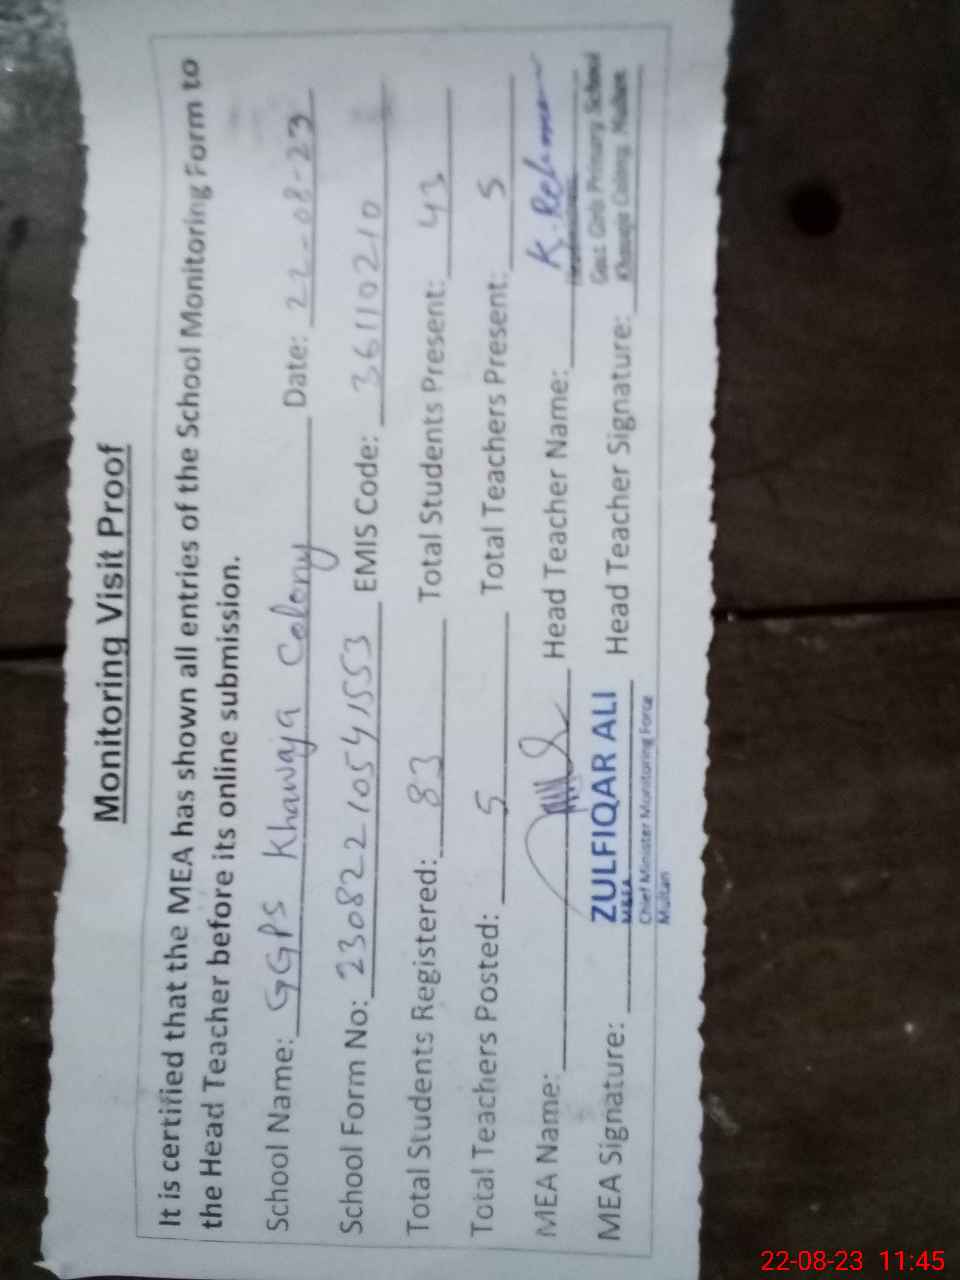 Monitoring Visit Proof
It is certified that the MEA has shown all entries of the School Monitoring Form to
the Head Teacher before its online submission.
School Name: GGPS Khawaja Colony Date: 22-08-23
School Form No: 230822 10541553 EMIS Code: 36110210
Total Students Registered: 83 Total Students Present: 43
Total Teachers Posted: 5 Total Teachers Present: 5
MEA Name: Head Teacher Name: K. Rehman
MEA Signature: ZULFIQAR ALI Head Teacher Signature:
MEA
Chief Minister Monitoring Force
Multan
Govt. Girls Primary School
Khawaja Colony, Multan
22-08-23 11:45